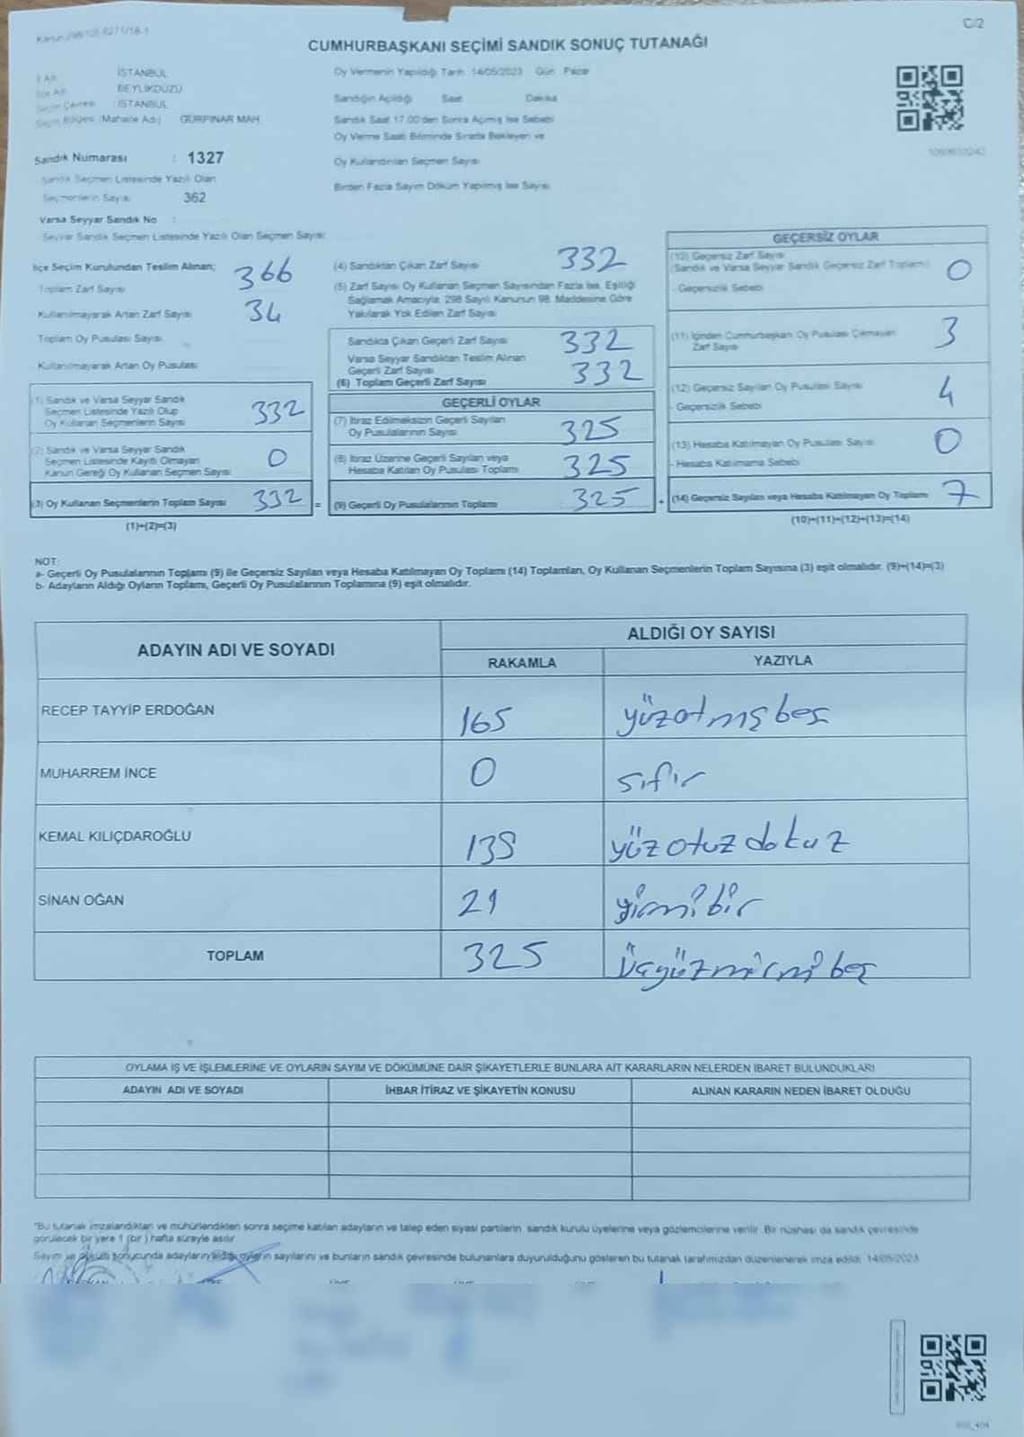 C/2
CUMHURBAŞKANI SEÇİMİ SANDIK SONUÇ TUTANAĞI
İSTANBUL
BEYLİKDÜZÜ
İSTANBUL
(Mahalle Adı) GÜRPINAR MAH.
Sandık Numarası : 1327
Sandık Seçmen Listesinde Yazılı Olan
Seçmenlerin Sayısı 362
Varsa Seyyar Sandık No :
Seyyar Sandık Seçmen Listesinde Yazılı Olan Seçmen Sayısı
Oy Vermenin Yapıldığı Tarih: 14/05/2023 Gün: Pazar
Sandığın Açıldığı Saat Dakika
Sandık Saat 17.00'den Sonra Açılmış İse Sebebi
Oy Verme Saati Bitiminde Sırada Bekleyen ve
Oy Kullandırılan Seçmen Sayısı
Birden Fazla Sayım Döküm Yapılmış İse Sayısı
İlçe Seçim Kurulundan Teslim Alınan;
Toplam Zarf Sayısı 366
Kullanılmayarak Artan Zarf Sayısı 34
Toplam Oy Pusulası Sayısı
Kullanılmayarak Artan Oy Pusulası
(1) Sandık ve Varsa Seyyar Sandık
Seçmen Listesinde Yazılı Olup
Oy Kullanan Seçmenlerin Sayısı 332
(2) Sandık ve Varsa Seyyar Sandık
Seçmen Listesinde Kayıtlı Olmayan
Kanun Gereği Oy Kullanan Seçmen Sayısı 0
(3) Oy Kullanan Seçmenlerin Toplam Sayısı 332 =
(1)+(2)=(3)
(4) Sandıktan Çıkan Zarf Sayısı 332
(5) Zarf Sayısı Oy Kullanan Seçmen Sayısından Fazla İse, Eşitliği
Sağlamak Amacıyla, 298 Sayılı Kanunun 98. Maddesine Göre
Yakılarak Yok Edilen Zarf Sayısı
Sandıkta Çıkan Geçerli Zarf Sayısı 332
Varsa Seyyar Sandıktan Teslim Alınan
Geçerli Zarf Sayısı
(6) Toplam Geçerli Zarf Sayısı 332
GEÇERLİ OYLAR
(7) İtiraz Edilmeksizin Geçerli Sayılan
Oy Pusulalarının Sayısı 325
(8) İtiraz Üzerine Geçerli Sayılan veya
Hesaba Katılan Oy Pusulası Toplamı 325
(9) Geçerli Oy Pusulalarının Toplamı 325 +
GEÇERSİZ OYLAR
(10) Geçersiz Zarf Sayısı
(Sandık ve Varsa Seyyar Sandık Geçersiz Zarf Toplamı) 0
- Geçersizlik Sebebi
(11) İçinden Cumhurbaşkanı Oy Pusulası Çıkmayan
Zarf Sayısı 3
(12) Geçersiz Sayılan Oy Pusulası Sayısı 4
- Geçersizlik Sebebi
(13) Hesaba Katılmayan Oy Pusulası Sayısı 0
- Hesaba Katılmama Sebebi
(14) Geçersiz Sayılan veya Hesaba Katılmayan Oy Toplamı 7
(10)+(11)+(12)+(13)=(14)
NOT:
a- Geçerli Oy Pusulalarının Toplamı (9) ile Geçersiz Sayılan veya Hesaba Katılmayan Oy Toplamı (14) Toplamları, Oy Kullanan Seçmenlerin Toplam Sayısına (3) eşit olmalıdır. (9)+(14)=(3)
b- Adayların Aldığı Oyların Toplamı, Geçerli Oy Pusulalarının Toplamına (9) eşit olmalıdır.
ADAYIN ADI VE SOYADI ALDIĞI OY SAYISI
RAKAMLA YAZIYLA
RECEP TAYYİP ERDOĞAN 165 yüzatmış beş
MUHARREM İNCE 0 sıfır
KEMAL KILIÇDAROĞLU 139 yüz otuz dokuz
SİNAN OĞAN 21 yirmi bir
TOPLAM 325 üçyüzyirmi beş
OYLAMA İŞ VE İŞLEMLERİNE VE OYLARIN SAYIM VE DÖKÜMÜNE DAİR ŞİKAYETLERLE BUNLARA AİT KARARLARIN NELERDEN İBARET BULUNDUKLARI
ADAYIN ADI VE SOYADI İHBAR İTİRAZ VE ŞİKAYETİN KONUSU ALINAN KARARIN NEDEN İBARET OLDUĞU
*Bu tutanak imzalandıktan ve mühürlendikten sonra seçime katılan adayların ve talep eden siyasi partilerin sandık kurulu üyelerine veya gözlemcilerine verilir. Bir nüshası da sandık çevresinde
görülecek bir yere 1 (bir) hafta süreyle asılır.
Sayım ve döküm sonucunda adayların aldığı oyların sayılarını ve bunların sandık çevresinde bulunanlara duyurulduğunu gösteren bu tutanak tarafımızdan düzenlenerek imza edildi. 14/05/2023